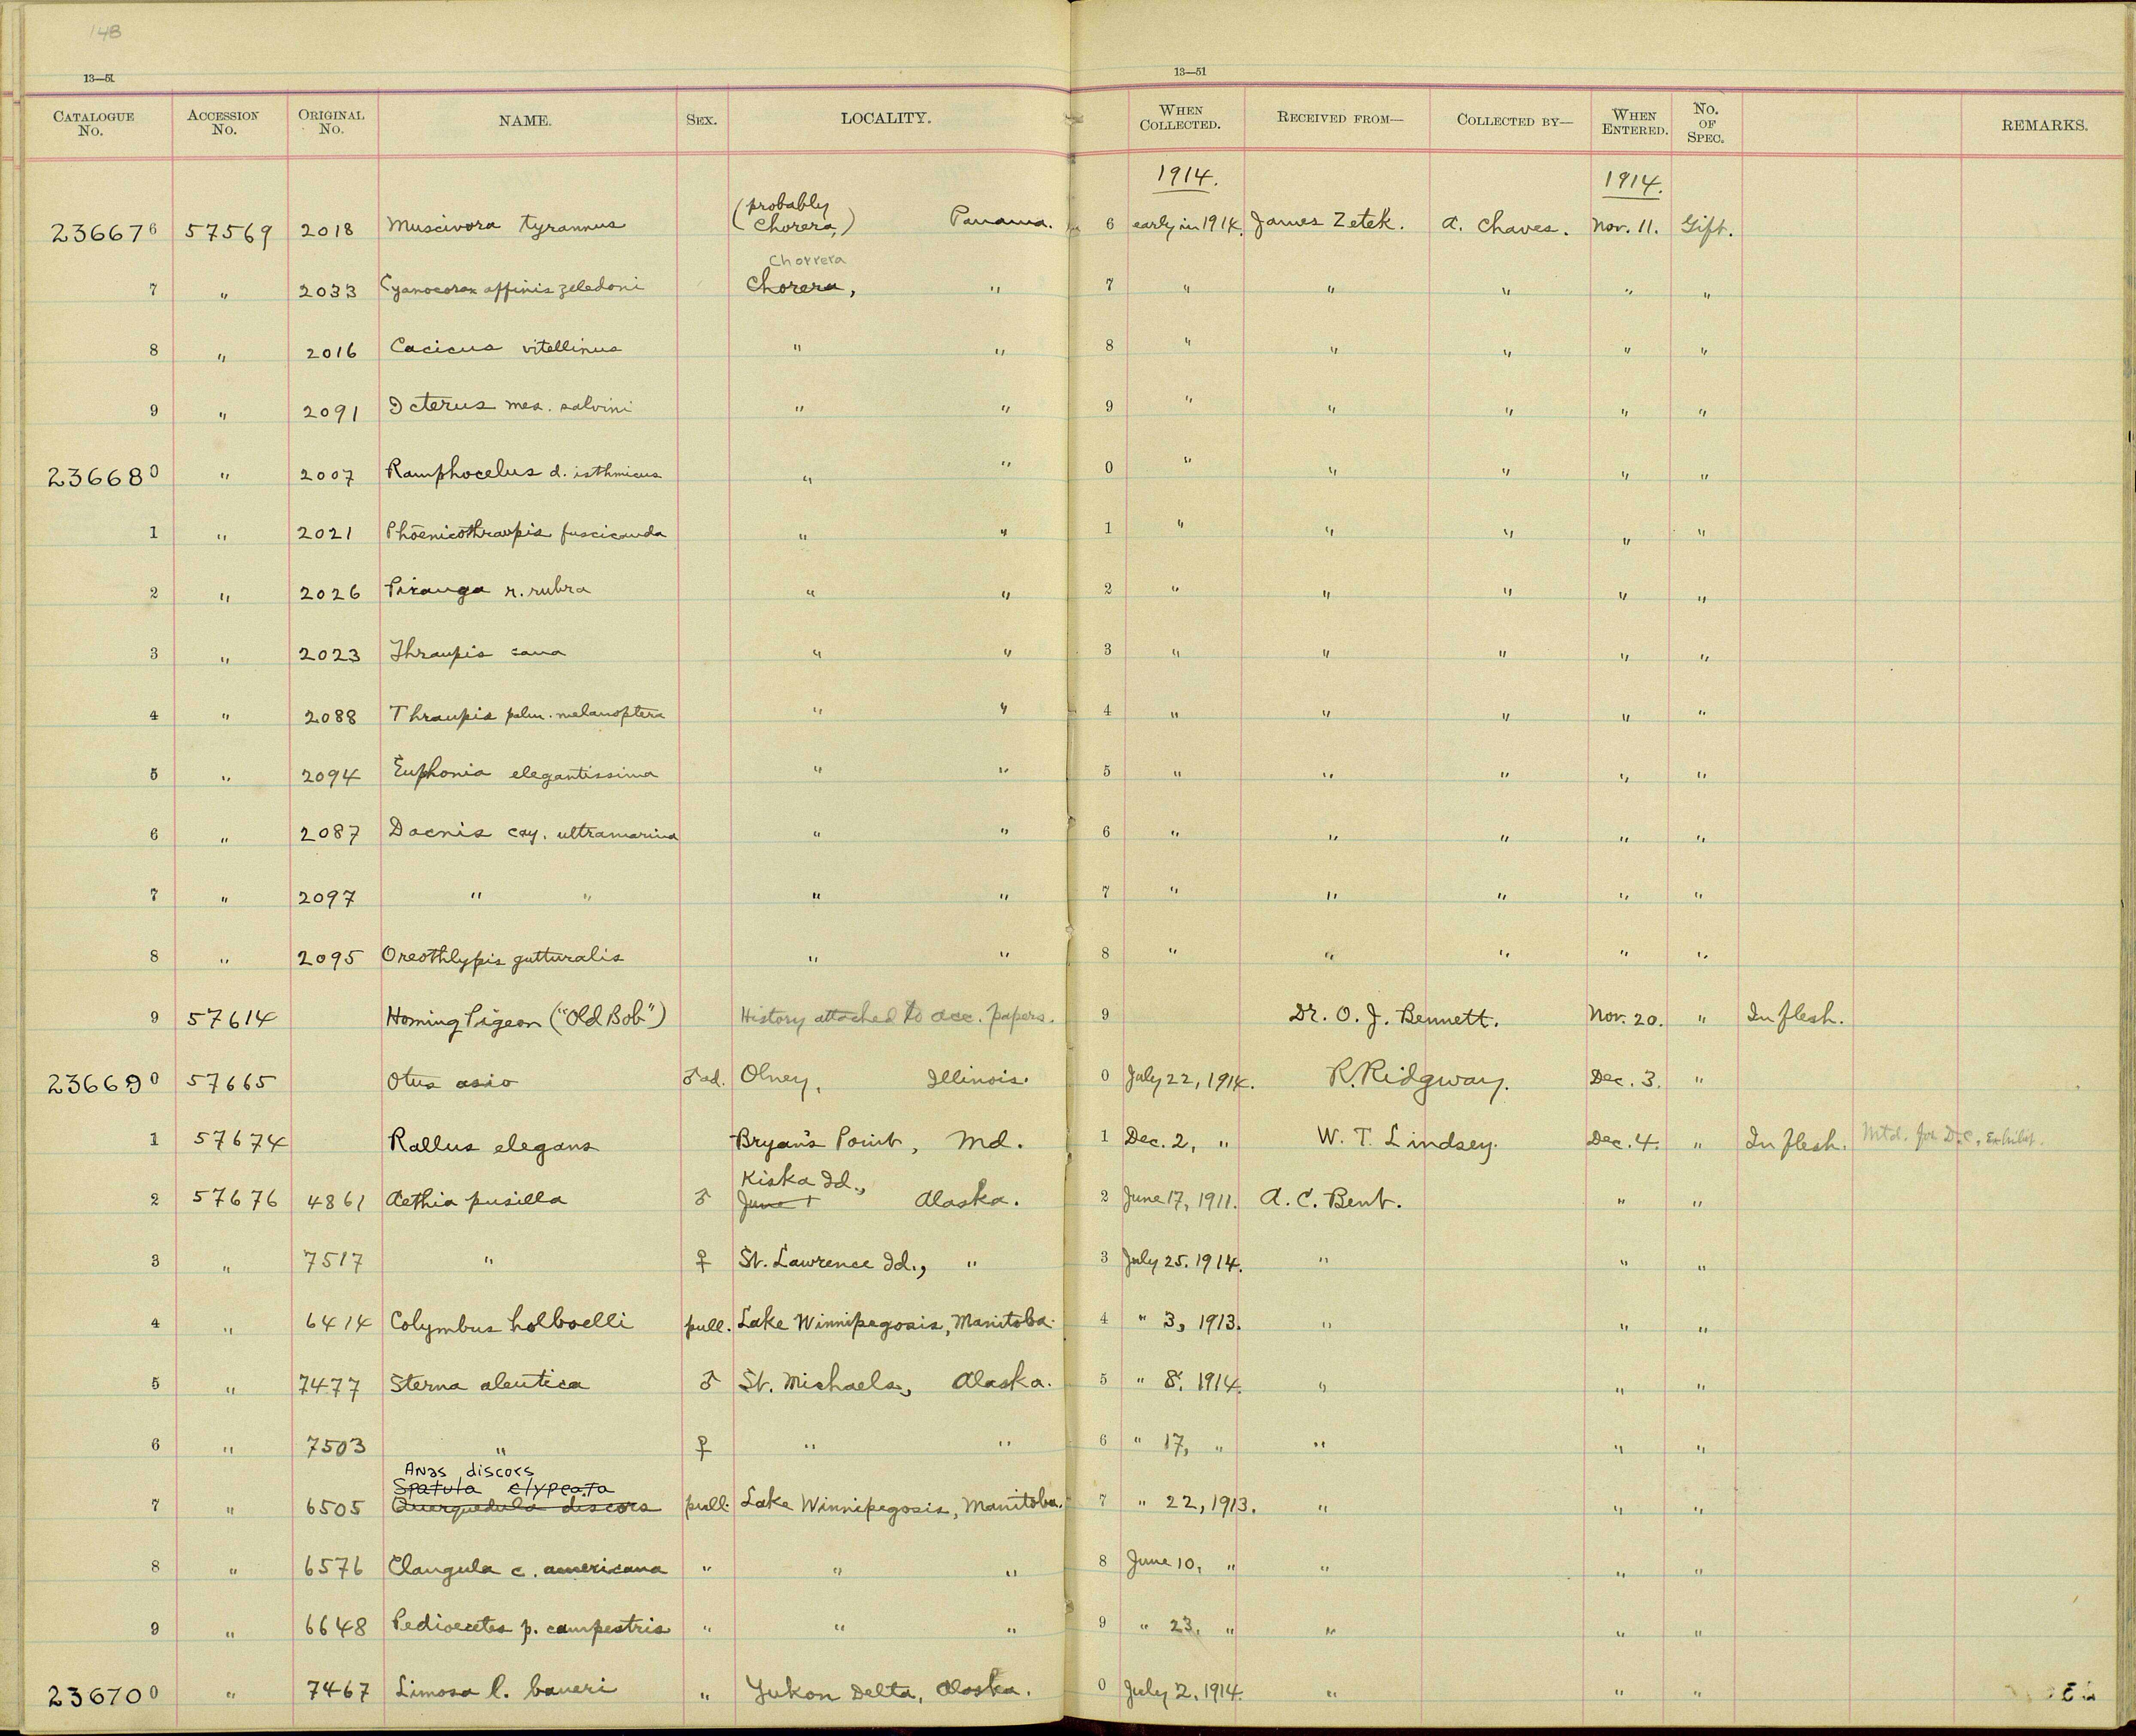 148
13—51
13—51
CATALOGUE No. ACCESSION No. ORIGINAL No. NAME. SEX. LOCALITY. WHEN COLLECTED. RECEIVED FROM— COLLECTED BY— WHEN ENTERED. No. OF SPEC. REMARKS.
1914. 1914.
236676 57569 2018 Muscivora tyrannus (probably Chorera,) Panama. 6 early in 1914. James Zetek. A. Chaves. Nov. 11. Gift.
Chorrera
7 " 2033 Cyanocorax affinis zeledoni Chorera, " 7 " " " " "
8 " 2016 Cacicus vitellinus " " 8 " " " " "
9 " 2091 Icterus mes. salvini " " 9 " " " " "
236680 " 2007 Ramphocelus d. isthmicus " " 0 " " " " "
1 " 2021 Phoenicothraupis fuscicauda " " 1 " " " " "
2 " 2026 Piranga r. rubra " " 2 " " " " "
3 " 2023 Thraupis cana " " 3 " " " " "
4 " 2088 Thraupis palm. melanoptera " " 4 " " " " "
5 " 2094 Euphonia elegantissima " " 5 " " " " "
6 " 2087 Dacnis cay. ultramarina " " 6 " " " " "
7 " 2097 " " " " 7 " " " " "
8 " 2095 Oreothlypis gutturalis " " 8 " " " " "
9 57614 Homing Pigeon ("Old Bob") History attached to acc. papers. 9 Dr. O. J. Bennett. Nov. 20. " In flesh.
236690 57665 Otus asio ♂ad. Olney, Illinois. 0 July 22, 1914. R. Ridgway. Dec. 3. "
1 57674 Rallus elegans Bryan's Point, Md. 1 Dec. 2, " W. T. Lindsey. Dec. 4. " In flesh. Mtd. for D.C. Exhibit.
Kiska Id.,
2 57676 4861 Aethia pusilla ♂ June 1 Alaska. 2 June 17, 1911. A. C. Bent. " "
3 " 7517 " ♀ St. Lawrence Id., " 3 July 25. 1914. " " "
4 " 6414 Colymbus holboelli pull. Lake Winnipegosis, Manitoba. 4 " 3, 1913. " " "
5 " 7477 Sterna aleutica ♂ St. Michaels, Alaska. 5 " 8, 1914. " " "
6 " 7503 " ♀ " " 6 " 17, " " " "
Anas discors
Spatula clypeata
7 " 6505 Querquedula discors pull. Lake Winnipegosis, Manitoba. 7 " 22, 1913. " " "
8 " 6576 Clangula c. americana " " " 8 June 10, " " " "
9 " 6648 Pedioecetes p. campestris " " " 9 " 23, " " " "
236700 " 7467 Limosa l. baueri " Yukon Delta, Alaska. 0 July 2, 1914. " " "